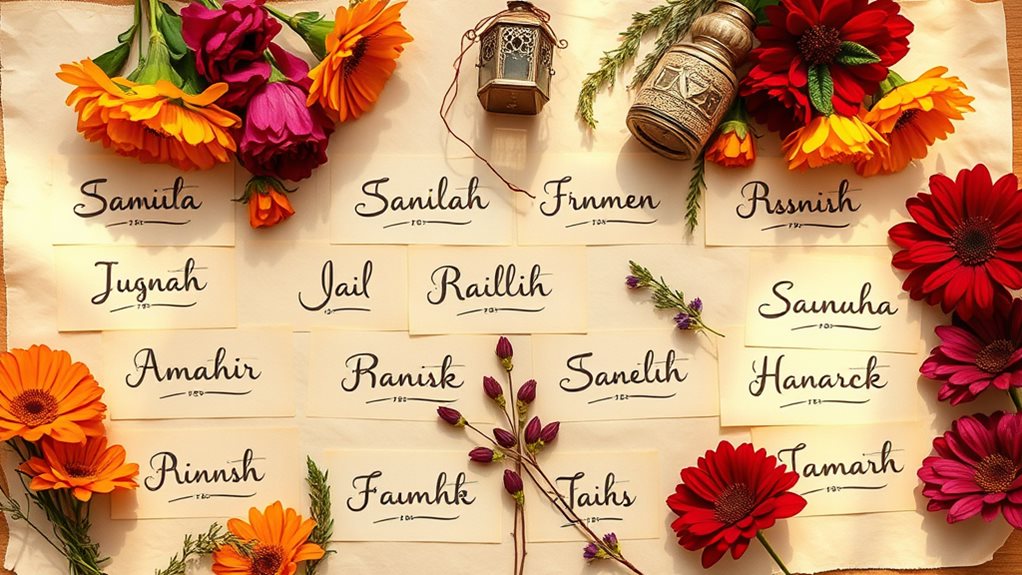 Samiita
Sanilah
Frnmen
Rssnish
Jugnah
Jail
Raillih
Saunuha
Amahir
Ranisk
Sanelih
Hanarck
Rinnsh
Faumhk
Taihs
Tamarh